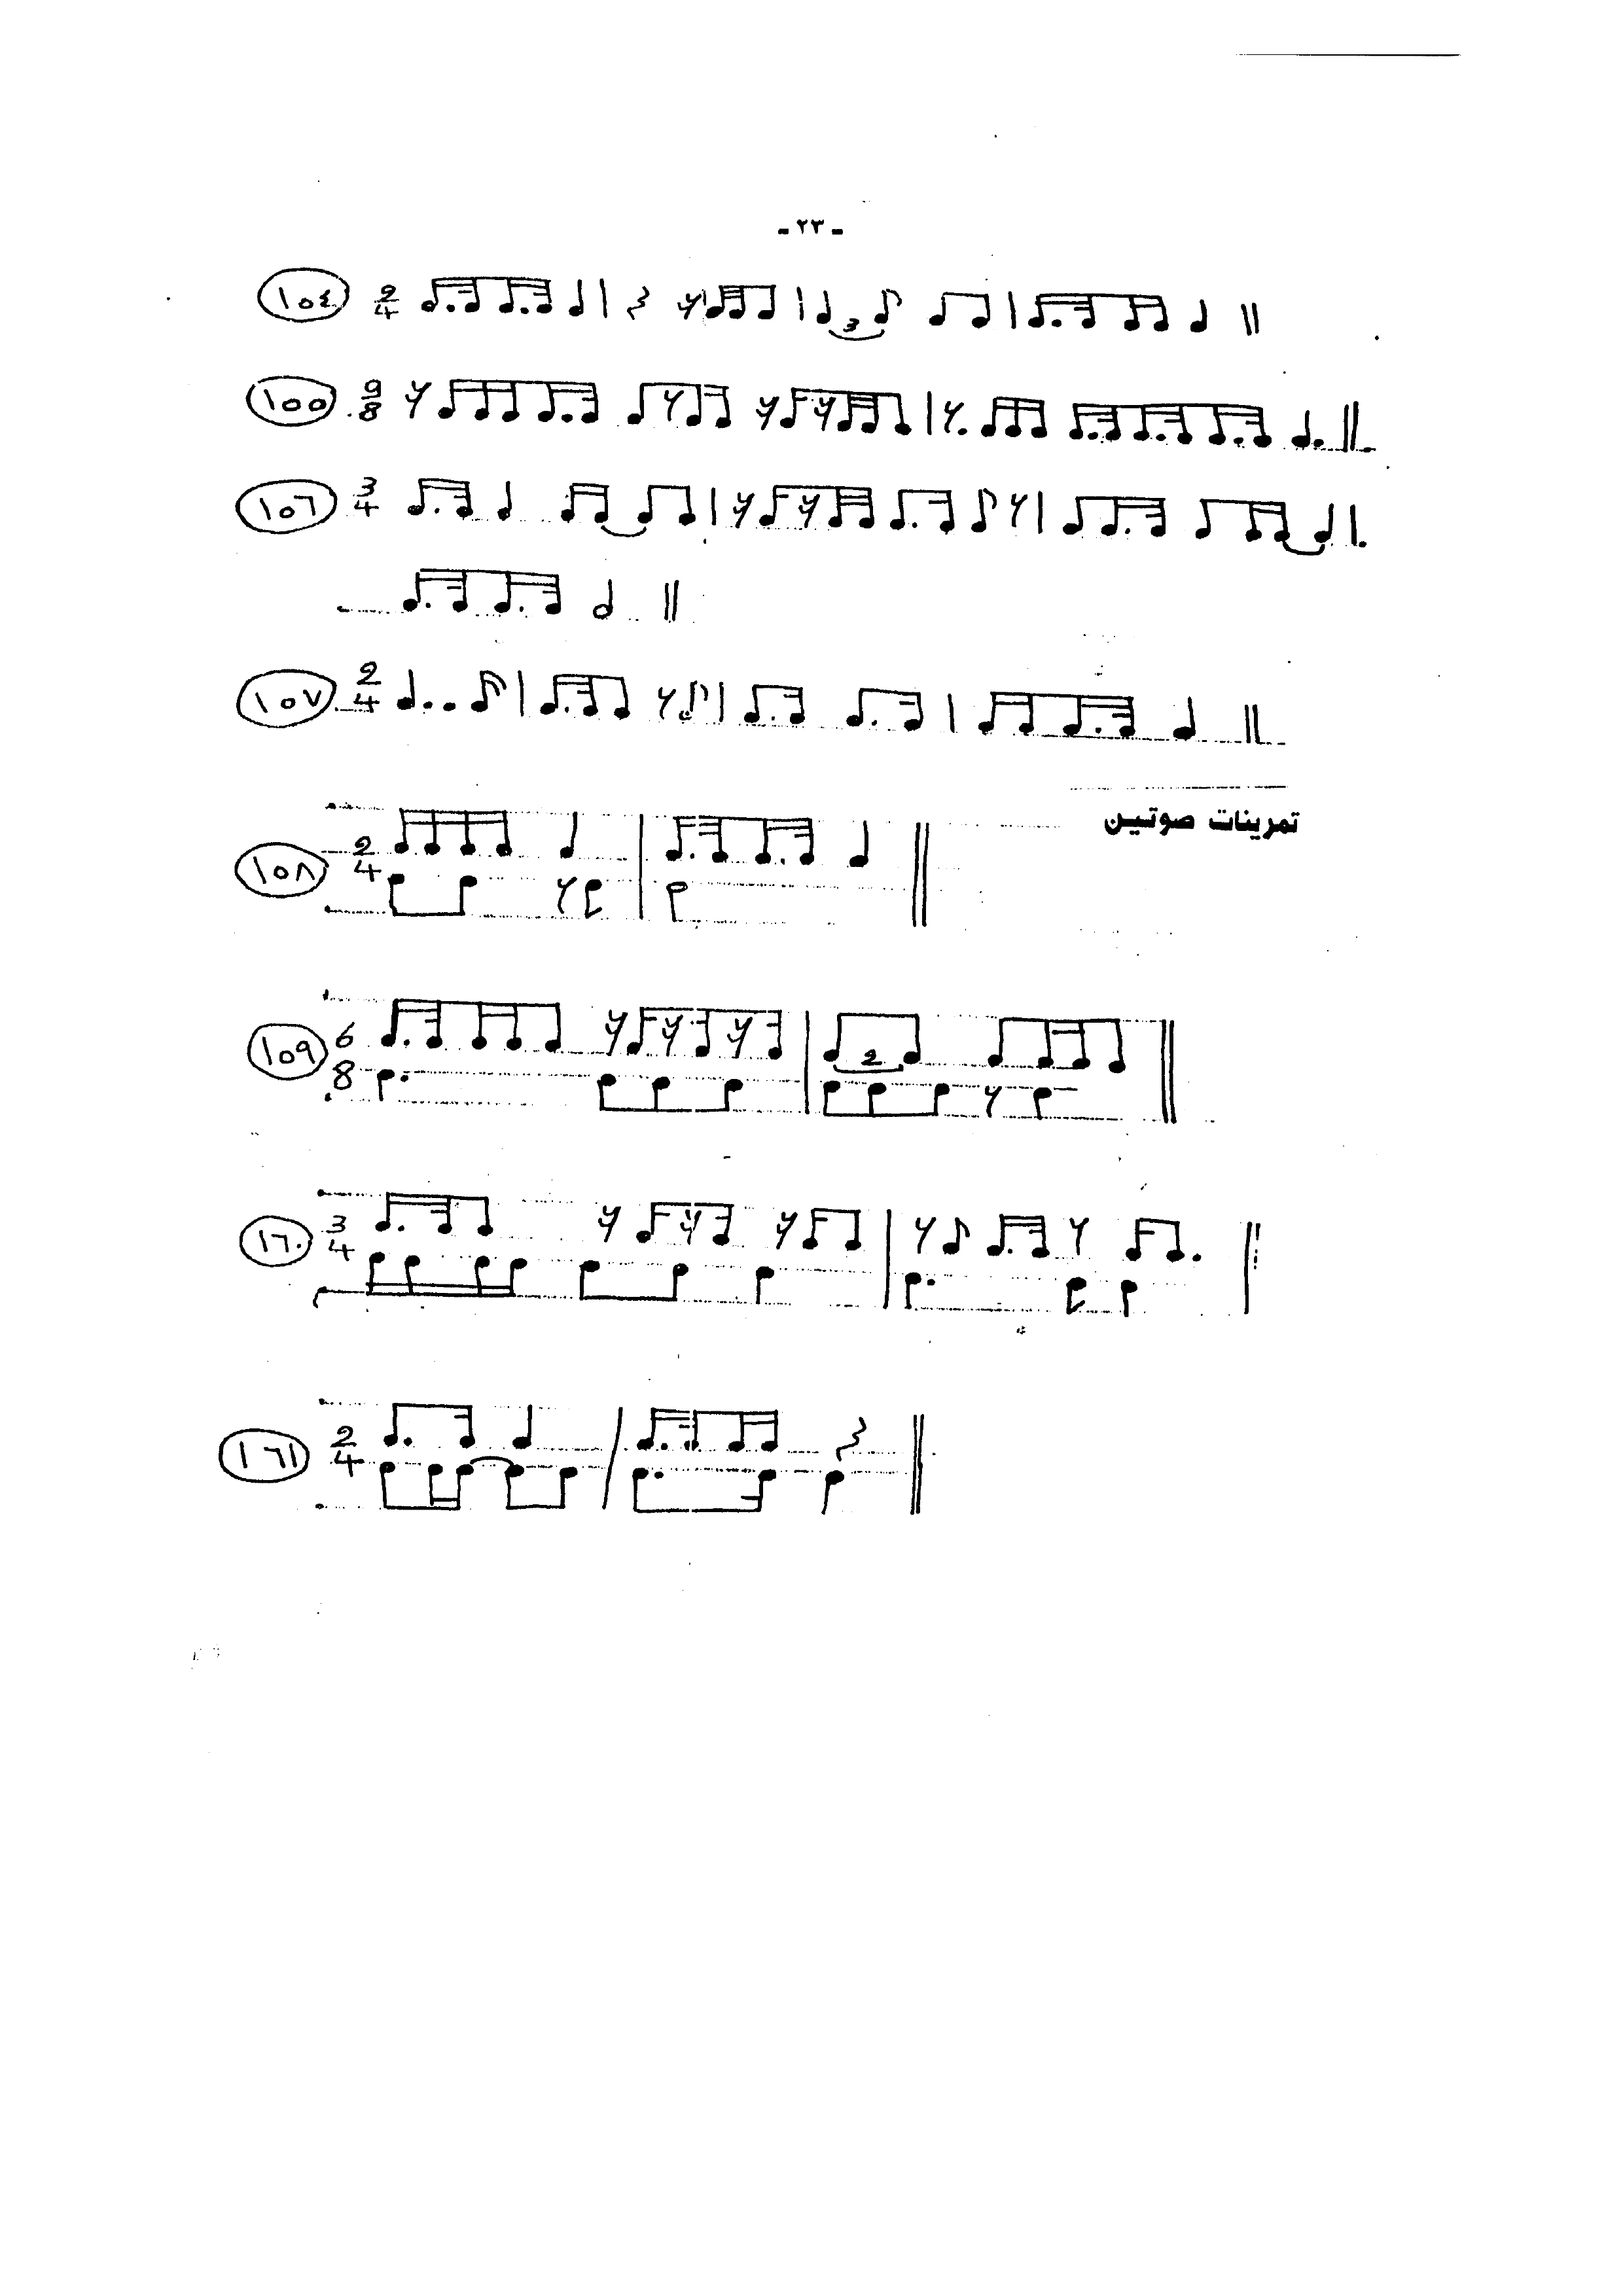 - ٢٣ -
١٥٤ 2/4 3
١٥٥ 9/8
١٥٦ 3/4
١٥٧ 2/4
تمرينات صوتين
١٥٨ 2/4
١٥٩ 6/8 2
١٦٠ 3/4
١٦١ 2/4